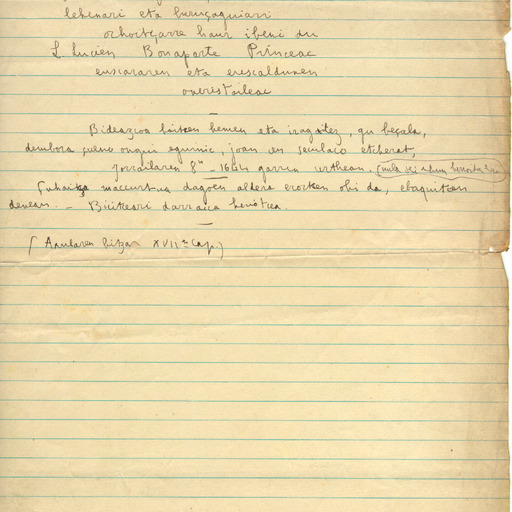 lehenari eta buruçaguiari
orhoitçarre haur ibeni du
L. Lucien Bonaparte Princeac
euscararen eta euscaldunen
onerestaileac
Bideazcoa baitcen hemen eta iragaitez, gu beçala,
dembora çuene onqui eguinic, joan cen seculaco etcherat,
Jorrailaren 8an 1644 garren urthean.
Çuhaitça maccurtua dagoen aldera erorten ohi da, ebaquitcen
denean. – Bicitceari darraica heriotcea.
( Axularen hitza XVIIan Cap. )